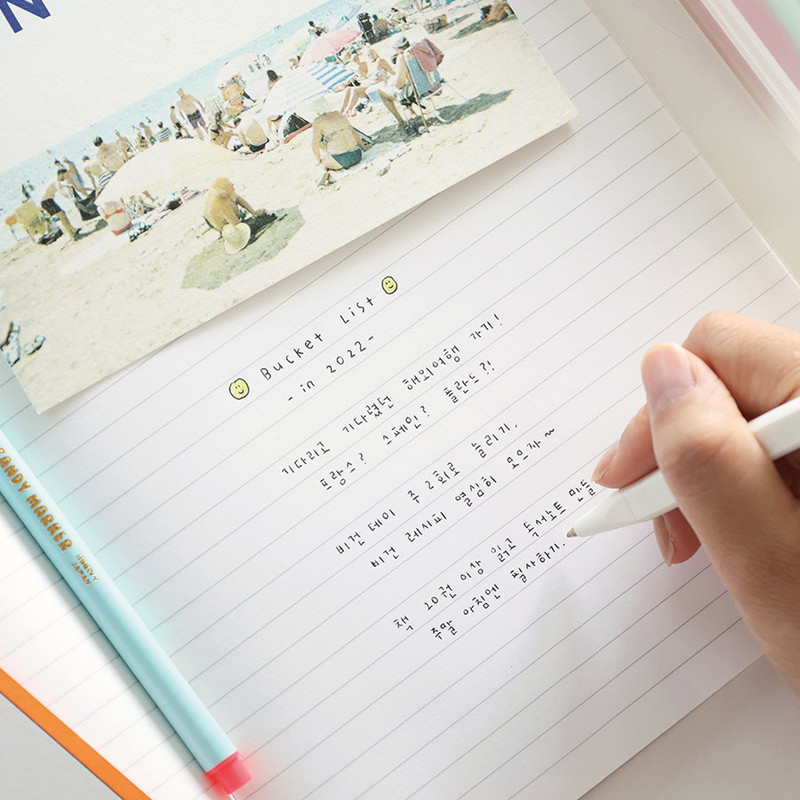 N
Bucket List
- in 2022 -
기다리고 기다렸던 해외여행 가기!
프랑스? 스페인? 폴란드?!
비건 데이 주 2회로 늘리기,
비건 레시피 열심히 모으자~
책 20권 이상 읽고 독서노트 만들
주말 아침엔 필사하기.
CANDY MARKER
JAPAN